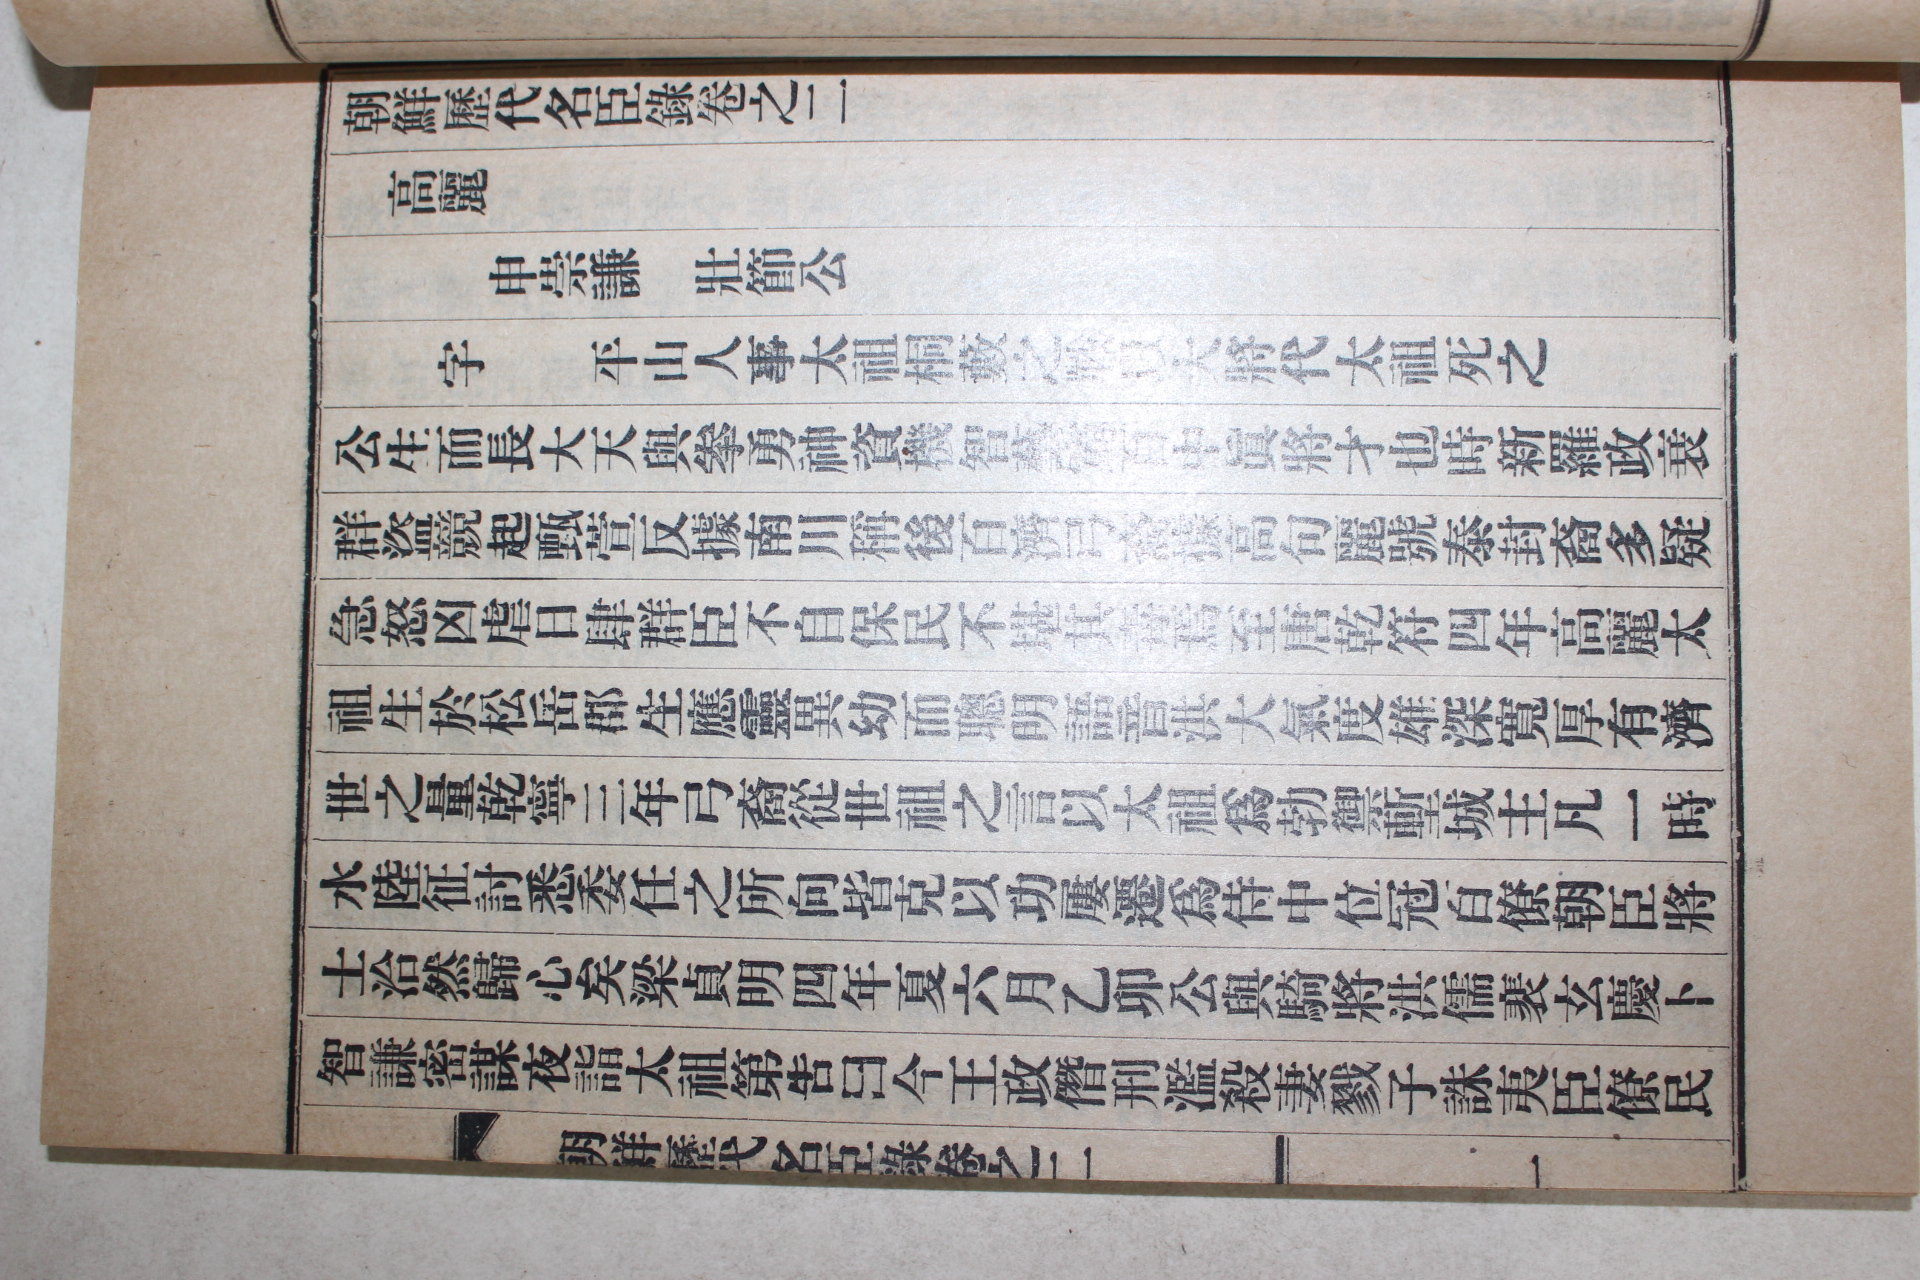 朝鮮歷代名臣錄卷之二
高麗
申崇謙 壯節公
字 平山人事太祖桐藪之戰以大將代太祖死之
公生而長大天與拳勇神資機智藝射百中眞將才也時新羅政衰
群盜競起甄萱反據南川稱後百濟弓裔據高句麗號泰封裔多疑
急怒凶虐日肆群臣不自保民不堪其毒焉至唐乾符四年高麗太
祖生於松岳郡生應靈異幼而聰明語音洪大氣度雄深寬厚有濟
世之量乾寧三年弓裔從世祖之言以太祖爲勃禦塹城主凡一時
水陸征討悉委任之所向皆克以功屢遷爲侍中位冠百僚朝臣將
士洽然歸心矣梁貞明四年夏六月乙卯公與騎將洪儒裴玄慶卜
智謙密謀夜詣太祖第告曰今王政僭刑濫殺妻戮子誅夷臣僚民
朝鮮歷代名臣錄卷之二
一